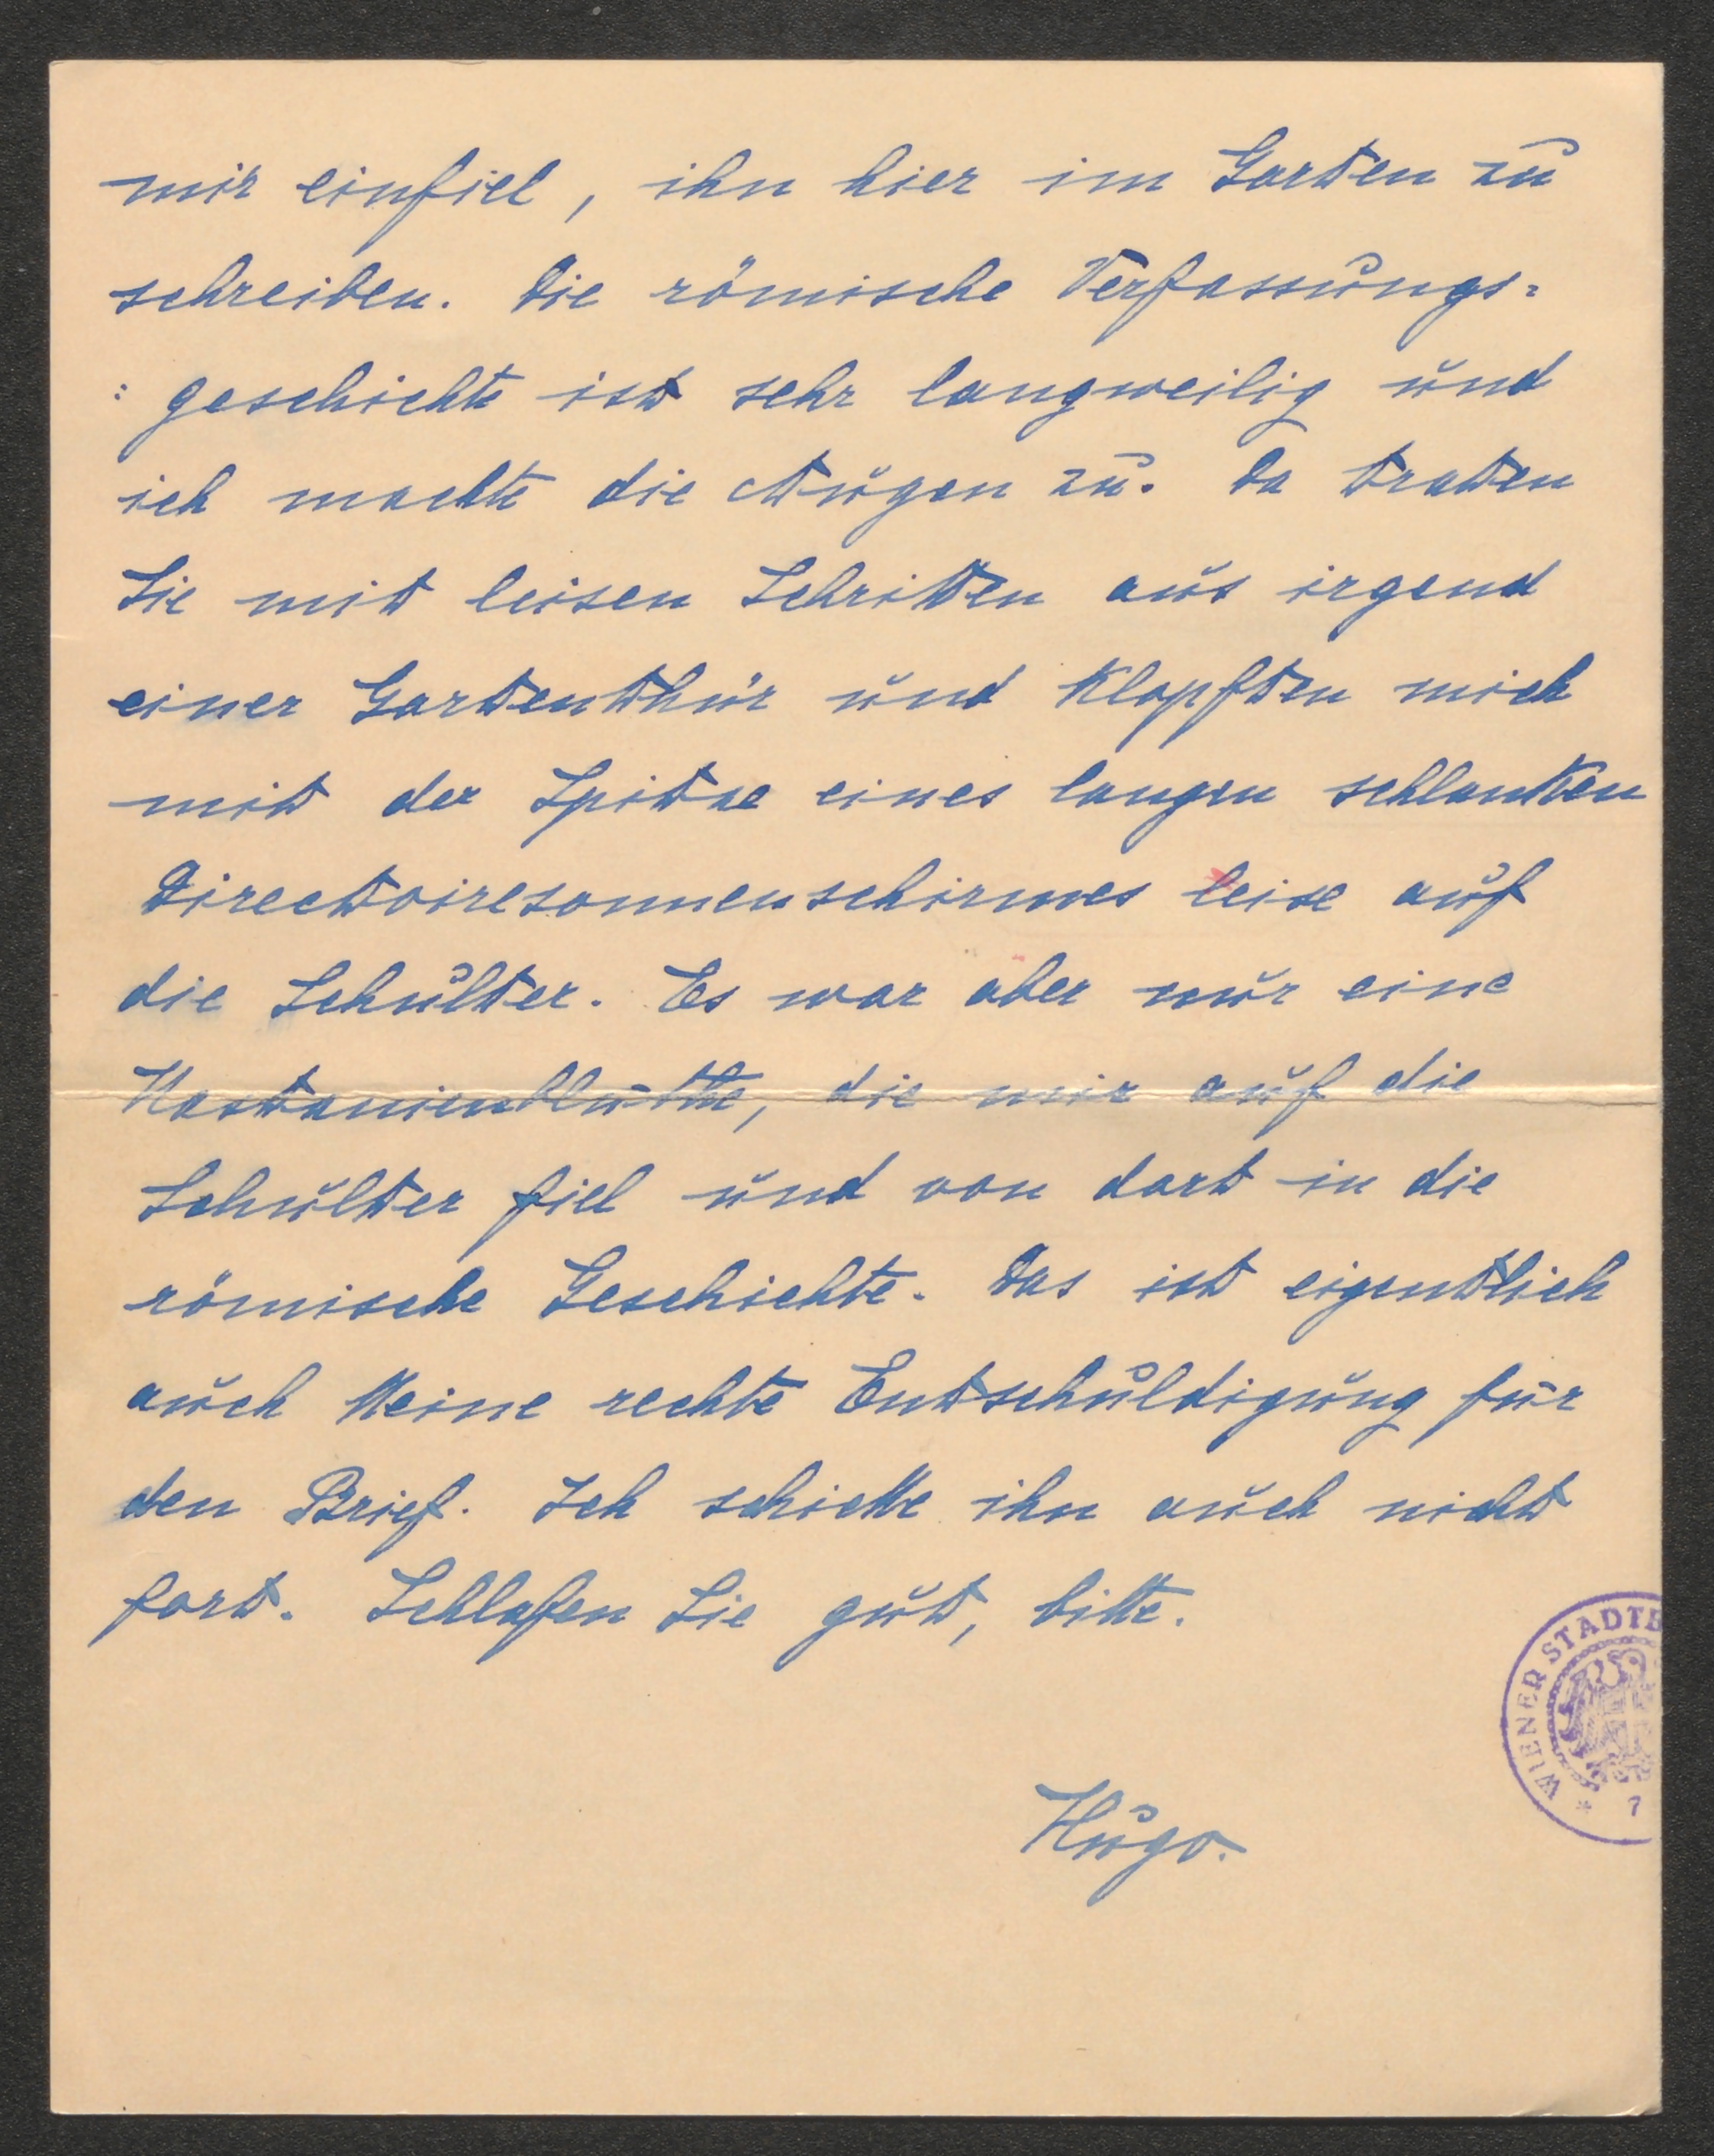 mir einfiel, ihn hier im Garten zu
schreiben. Die römische Verfassungs=
: geschichte ist sehr langweilig und
ich machte die Augen zu. Da traten
Sie mit leisen Schritten aus irgend
einer Gartenthür und klopften mich
mit der Spitze eines langen schlanken
Directoiresonnenschirmes leise auf
die Schulter. Es war aber nur eine
Kastanienblüthe, die mir auf die
Schulter fiel und von dort in die
römische Geschichte. Das ist eigentlich
auch keine rechte Entschuldigung für
den Brief. Ich schicke ihn auch nicht
fort. Schlafen Sie gut, bitte.
Hugo.
WIENER STADTB
* 7